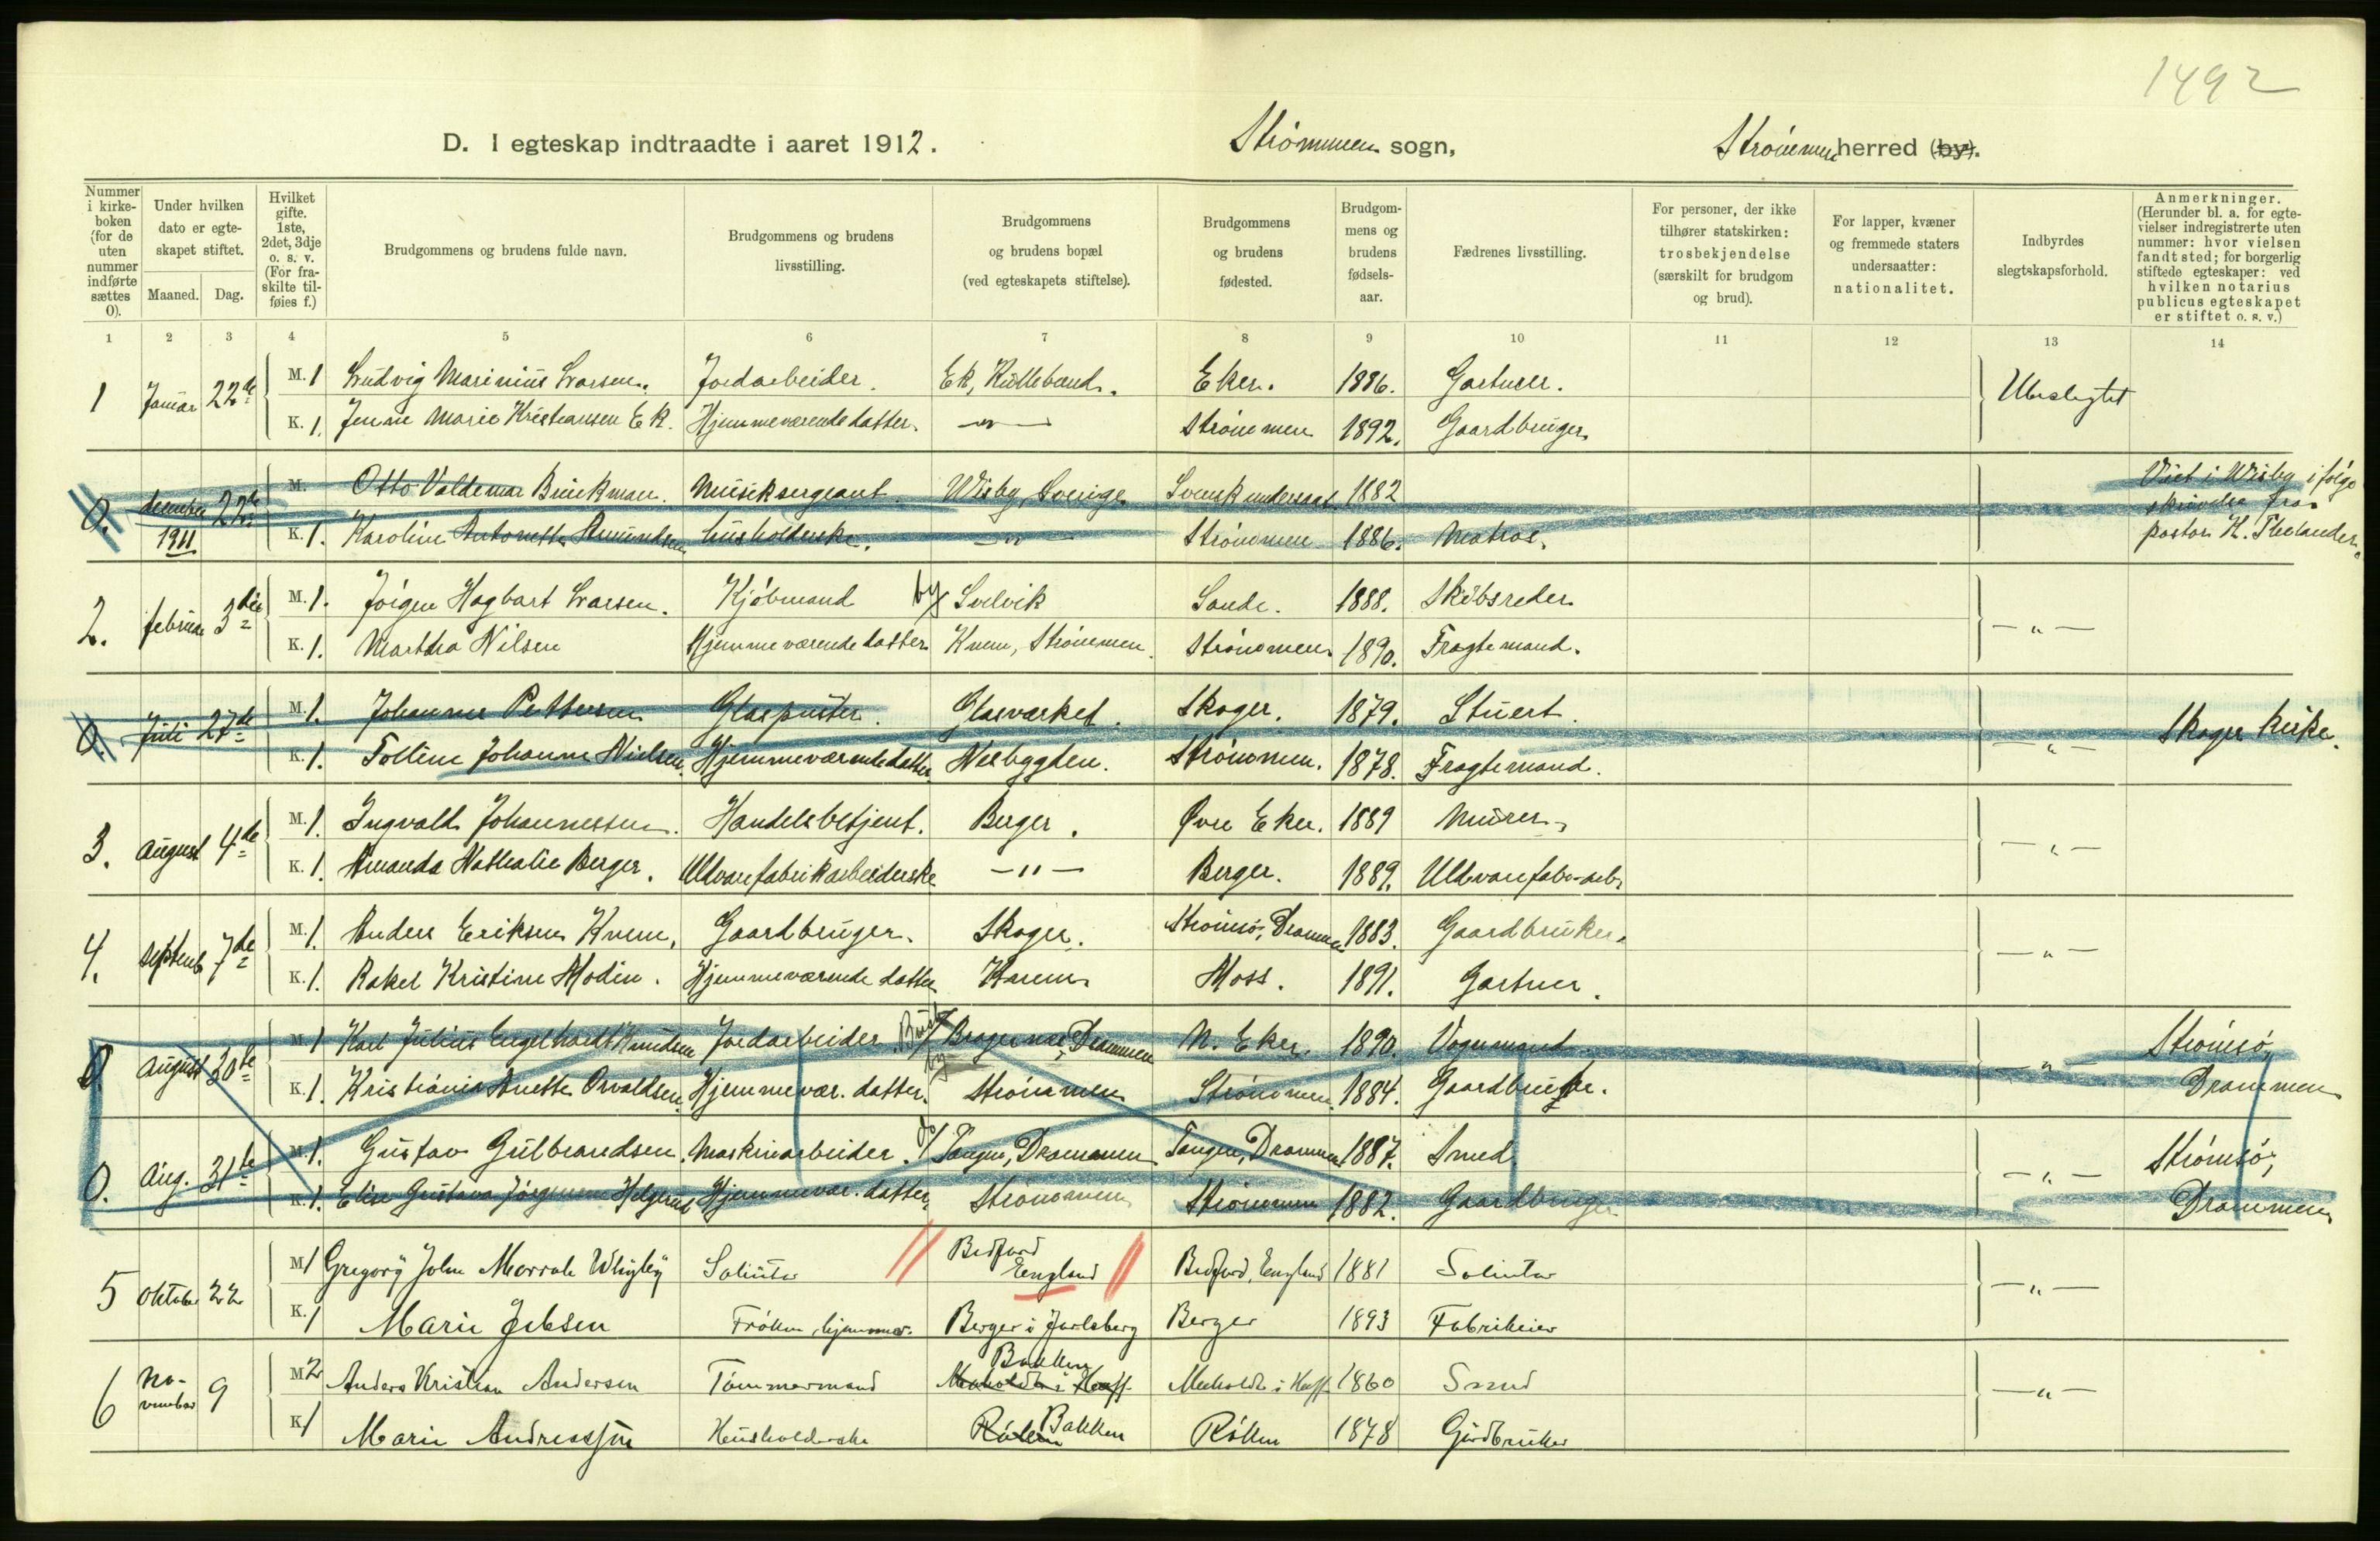 1492
D. I egteskap indtraadte i aaret 1912. Strömmen sogn, Strömmen herred (by).
Nummer i kirkeboken (for de uten nummer indførte sættes 0).
Under hvilken dato er egteskapet stiftet.
Maaned. Dag.
Hvilket gifte. 1ste, 2det, 3dje o. s. v. (For fraskilte tilføies f.)
Brudgommens og brudens fulde navn.
Brudgommens og brudens livsstilling.
Brudgommens og brudens bopæl (ved egteskapets stiftelse).
Brudgommens og brudens fødested.
Brudgommens og brudens fødselsaar.
Fædrenes livsstilling.
For personer, der ikke tilhører statskirken: trosbekjendelse (særskilt for brudgom og brud).
For lapper, kvæner og fremmede staters undersaatter: nationalitet.
Indbyrdes slegtskapsforhold.
Anmerkninger. (Herunder bl. a. for egtevielser indregistrerte uten nummer: hvor vielsen fandt sted; for borgerlig stiftede egteskaper: ved hvilken notarius publicus egteskapet er stiftet o. s. v.)
1 2 3 4 5 6 7 8 9 10 11 12 13 14
1 Januar 22de M. 1 Ludvig Marinius Larsen. Jordarbeider. Ek, Kullebund. Eker. 1886. Gartner. Ubeslegtet
K. 1. Jenne Marie Kristiansen Ek. Hjemmeværende datter. —"— Strömmen 1892. Gaardbruger
0. december 1911. 22de M. Otto Valdemar Brinkman. Musiksergeant. Wisby, Sverige Svensk undersaat 1882 Viet i Wisby ifölge skrivelse fra pastor K. Thelander.
K. 1. Karoline Antonette Amundsen husholderske. —"— Strömmen 1886. Matros.
2. februar 3die M. 1. Jörgen Hagbart Larsen. Kjöbmand by/ Svelvik Sande. 1888. Skibsreder —"—
K. 1. Martha Nilsen Hjemmeværende datter Knem, Strömmen. Strömmen 1890. Fragtemand.
0. Juli 27de M. 1. Johannes Pettersen Glaspuster. Glasværket. Skoger. 1879. Stuert. —"— Skoger kirke.
K. 1. Tolline Johanne Nielsen. Hjemmeværende datter. Nesbygden. Strömmen. 1878. Fragtemand.
3. August 4de M. 1. Ingvald Johannessen. Handelsbetjent. Berger. Övre Eker. 1889 Murer. —"—
K. 1. Amanda Nathalie Berger. Uldvarefabrikarbeiderske —"— Berger. 1889. Uldvarefabr-arb.
4. Septemb 7de M. 1. Anders Eriksen Knem. Gaardbruger. Skoger. Strömsö, Drammen 1883. Gaardbruker. —"—
K. 1. Rakel Kristine Modin. Hjemmeværende datter Knem Moss. 1891. Gartner.
0. August 30te M. 1 Karl Julius Engelhardt Knudsen Jordarbeider. By/ Bragernæs, Drammen N. Eker. 1890. Vognmand. —"— Strömsö, Drammen
K. 1. Kristiania Anette Osvaldsen. Hjemmevær. datter. Strömmen Strömmen. 1884. Gaardbruker.
0. Aug. 31te M. 1. Gustav Gulbrandsen. Maskinarbeider. do/ Tangen, Drammen Tangen, Drammen 1887. Smed. —"— Strömsö, Drammen
K. 1. Elise Gustava Jörgensen Helgerud Hjemmevær. datter. Strömmen Strömmen 1882. Gaardbruger
5 Oktober 22 M. 1 Gregory John Morrah Whyley Solicitor Bedford England Bedford, England 1881 Solicitor —"—
K. 1 Marie Jebsen Fröken, hjemmev. Berger i Jarlsberg Berger 1893 Fabrikeier
6 November 9 M. 2 Anders Kristian Andersen Tömmermand Bakken 1860 Smed —"—
K. 1 Marie Andreassen Husholderske Röken Bakken Röken 1878 Gårdbruker